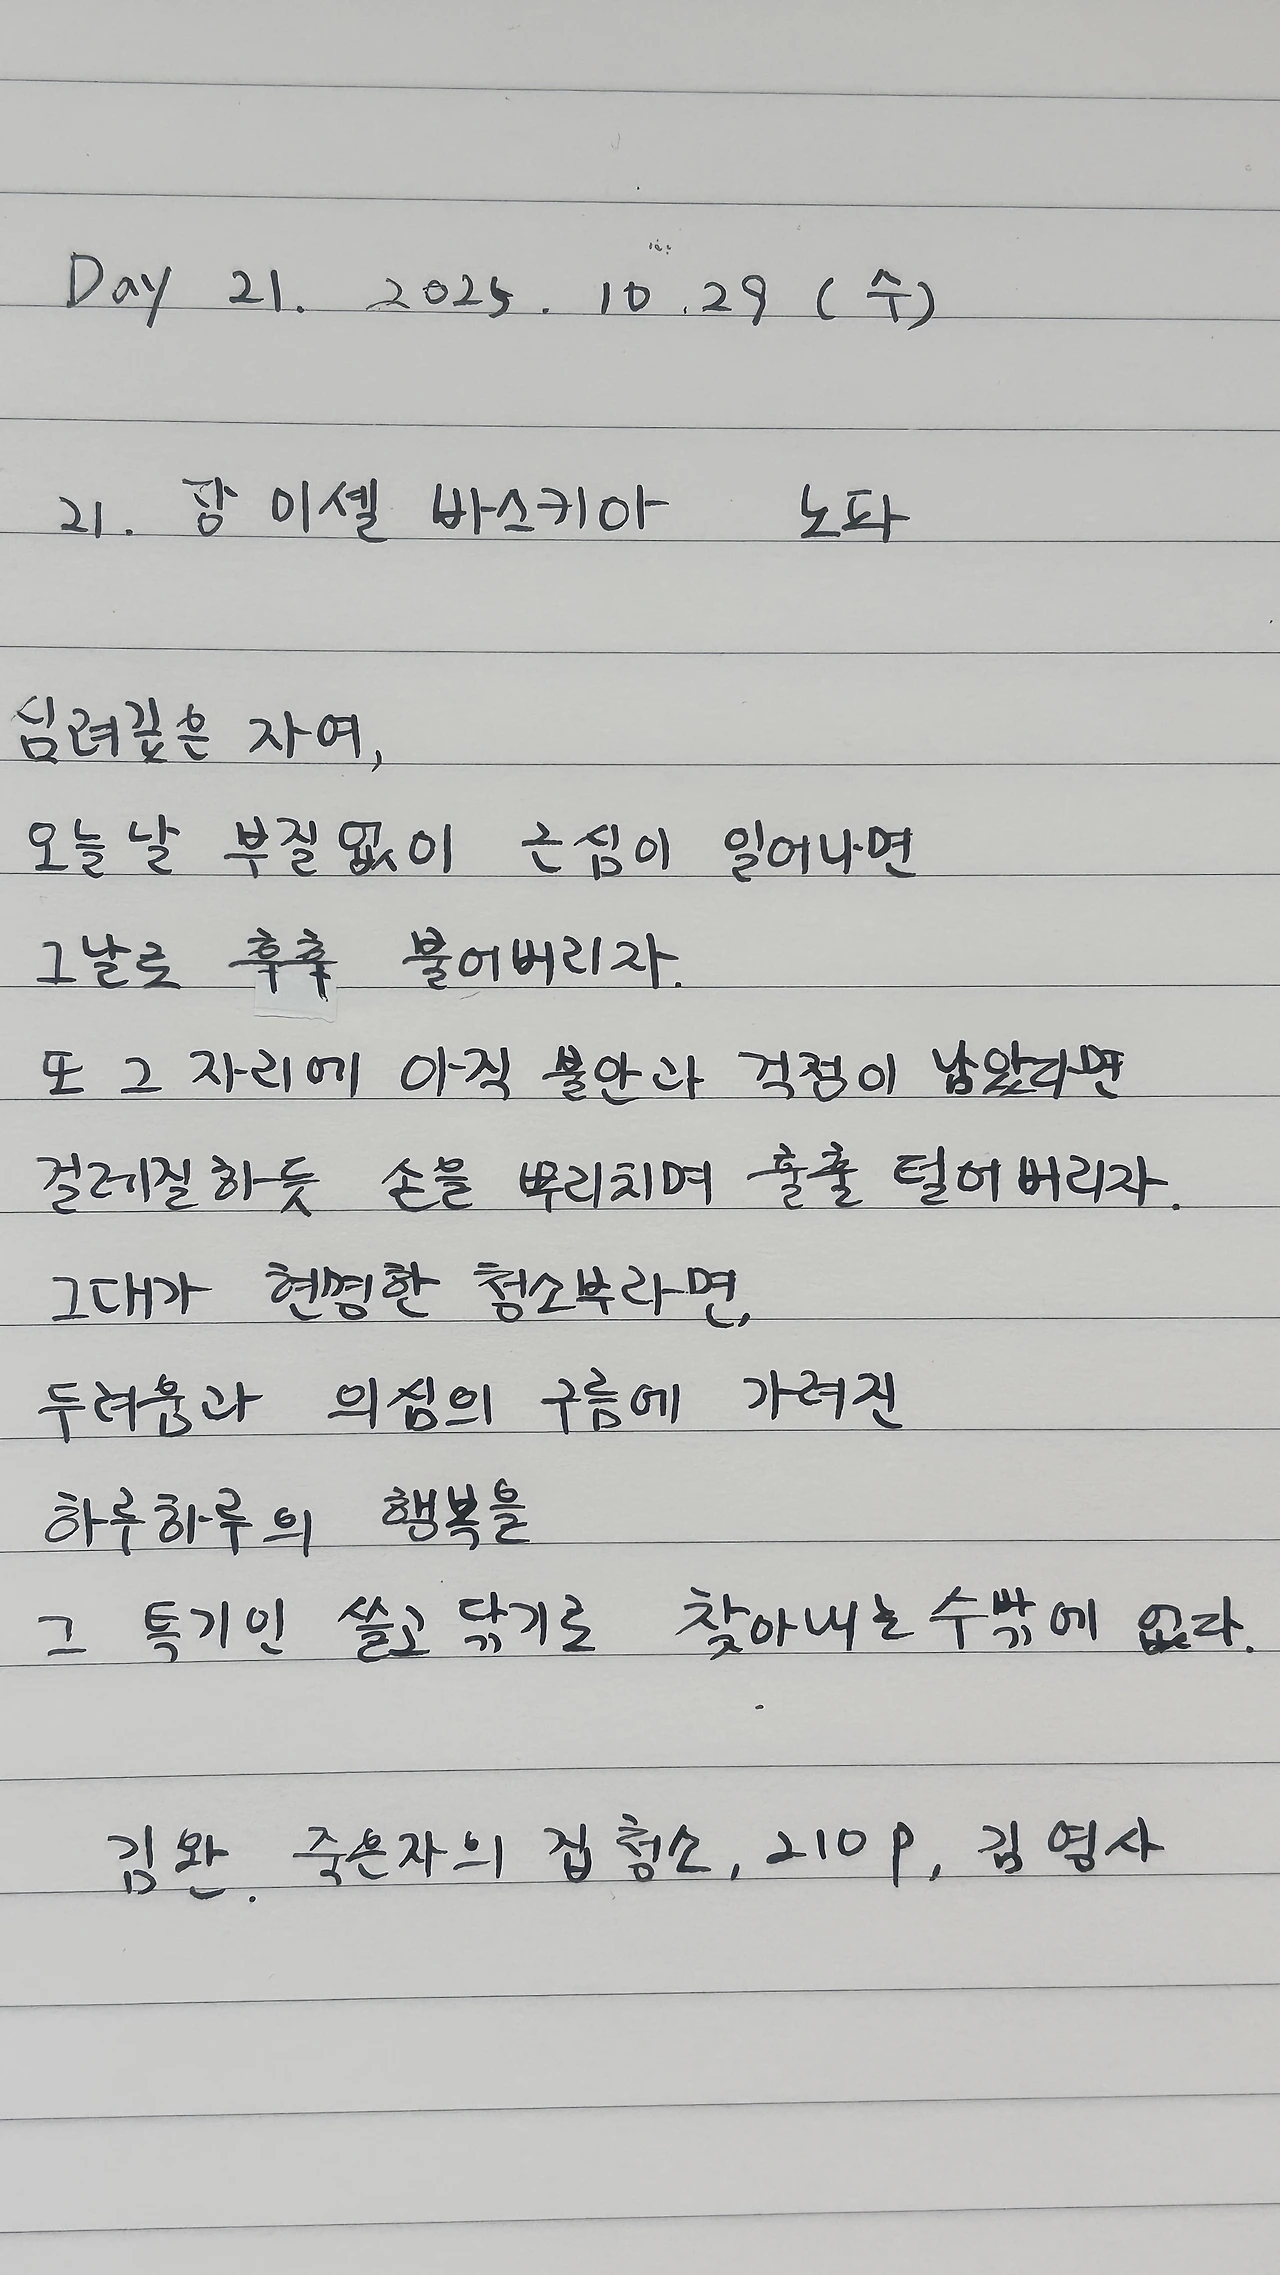 Day 21. 2025. 10. 29 (수)
21. 장 미셸 바스키아 노파
심려깊은 자여,
오늘날 부질없이 근심이 일어나면
그날로 후후 불어버리자.
또 그 자리에 아직 불안과 걱정이 남았다면
걸레질하듯 손을 뿌리치며 훌훌 털어버리자.
그대가 현명한 청소부라면,
두려움과 의심의 구름에 가려진
하루하루의 행복을
그 특기인 쓸고 닦기로 찾아내는 수밖에 없다.
김완. 죽은자의 집 청소, 210p, 김영사